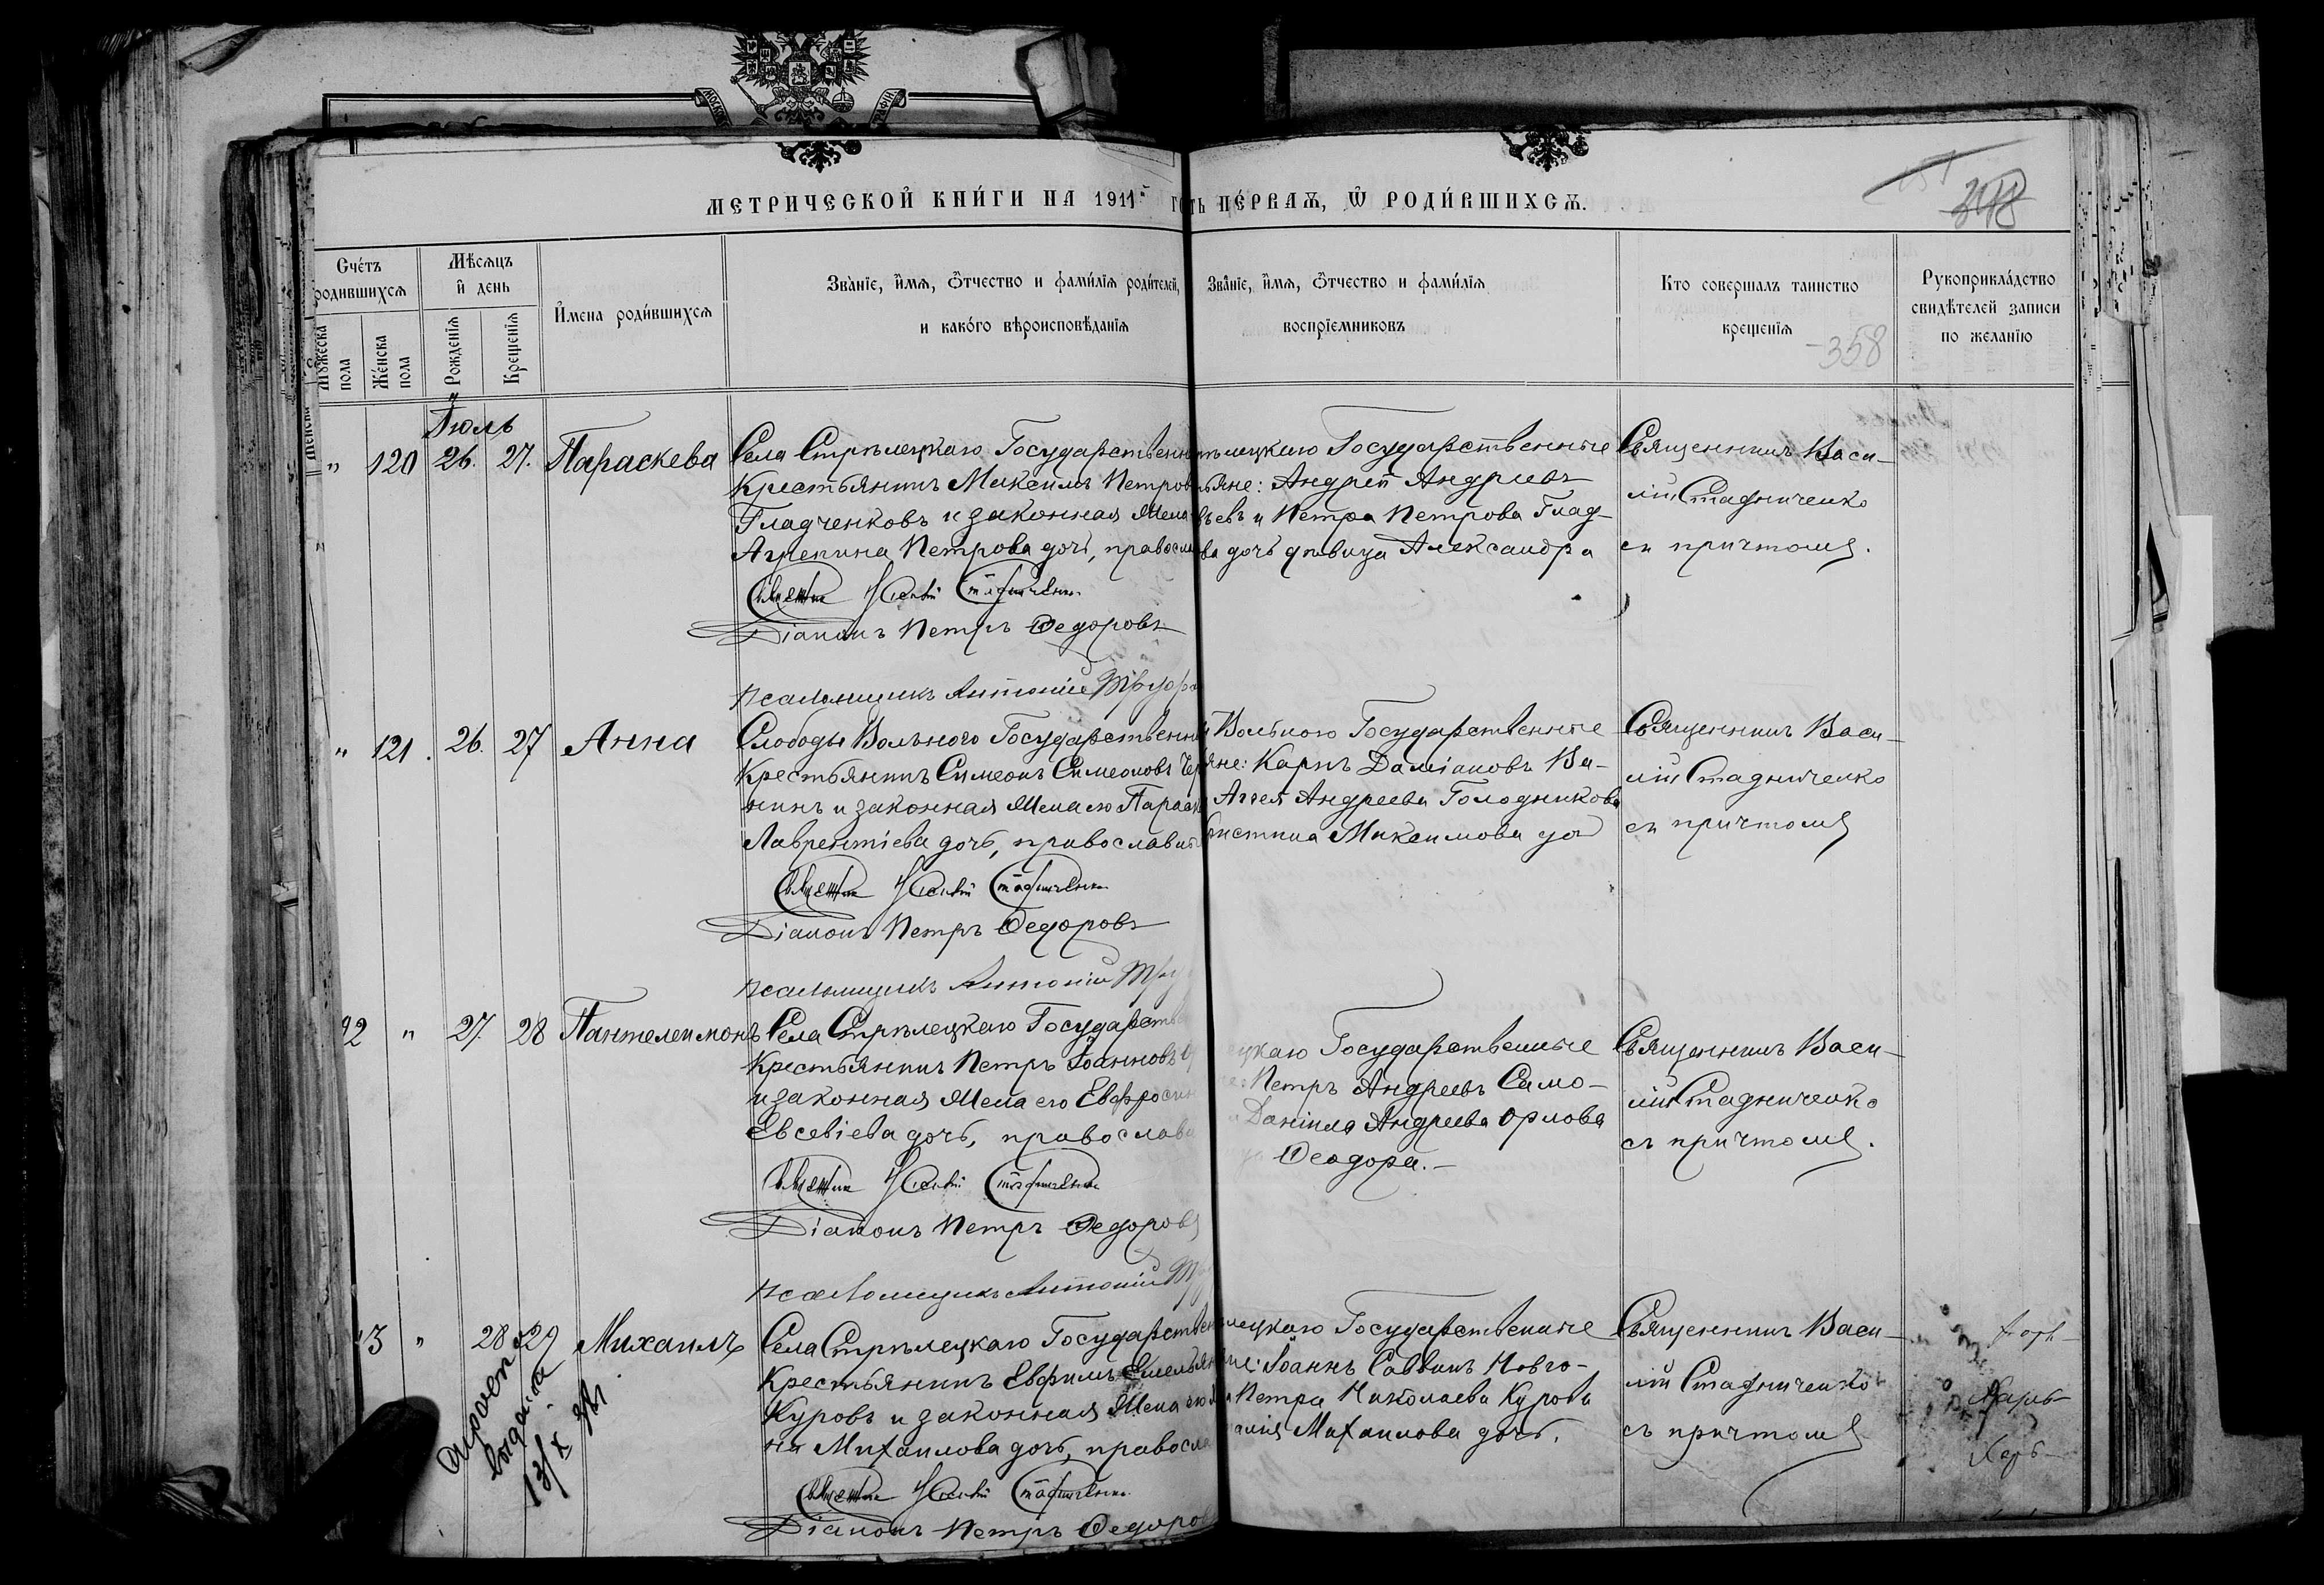 МЕТРИЧЕСКОЙ КНИ́ГИ НА 1911й годъ ПЕ́РВАЯ, Ѡ РОДИ́ВШИХСЯ.
348
Сче́тъ родившихся
Мꙋжеска пола
Же́нска пола
Мѣсяцъ и день
Рожденія
Крещенія
Имена роди́вшихся
Зва́ніе, и́мя, о́тчество и фами́лія роди́телей,
и како́го вѣроисповѣ́данія
Зва́ніе, и́мя, о́тчество и фами́лія
воспріемниковъ
Кто совершалъ таинство
крещенія
358
Рукоприкла́дство
свидѣтелей записи
по желанію
Іюль
" 120 26. 27. Параскева
Села Стрѣлецкаго Государственн
Крестьянинъ Максимъ Петров
Гладченковъ и законная Жена
Агрепина Петрова дочь, правосла
Священник Василій Стадниченко
Діаконъ Петръ Ѳедоровъ
Псаломщикъ Антоній
ѣлецкаго Государственные
ьяне: Андрей Андреевъ
ьевъ и Петра Петрова Глад-
ва дочь дѣвица Александра
Священникъ Васи-
лій Стадниченко
съ причтомъ.
" 121. 26. 27 Анна
Слободы Вольного Государственны
Крестьянинъ Симеонъ Симеоновъ Чер
нинъ и законная Жена его Параск
Лаврентіева дочь, православны
Священник Василій Стадниченко
Діаконъ Петръ Ѳедоровъ
Псаломщикъ Антоній
Вольного Государственные
яне: Карпъ Даміановъ Ва-
Аггея Андреева Голодникова
ристина Максимова до
Священникъ Васи-
лій Стадниченко
съ причтомъ
92 " 27. 28 Пантелеимонъ
Села Стрѣлецкаго Государств
Крестьянинъ Петръ Іоанновъ
и законная Жена его Евфросин
Евсевіева дочь, православ
Священник Василій Стадниченко
Діаконъ Петръ Ѳедоровъ
Псаломщикъ Антоній
ецкаго Государственные
Петръ Андреевъ Само-
Даніила Андреева Орлова
Ѳеодора.-
Священникъ Васи-
лій Стадниченко
съ причтомъ.
3 " 28 29 Михаилъ
выдана
13/X
Села Стрѣлецкаго Государствен
Крестьянинъ Евфимъ Емельян
Куровъ и законная Жена его
на Михаилова дочь, правосла
Священник Василій Стадниченко
Діаконъ Петръ Ѳедоров
лецкаго Государственные
не: Іоаннъ Саввинъ Новго-
Петра Николаева Курова
алія Михаилова дочь.
Священникъ Васи-
лій Стадниченко
съ причтомъ